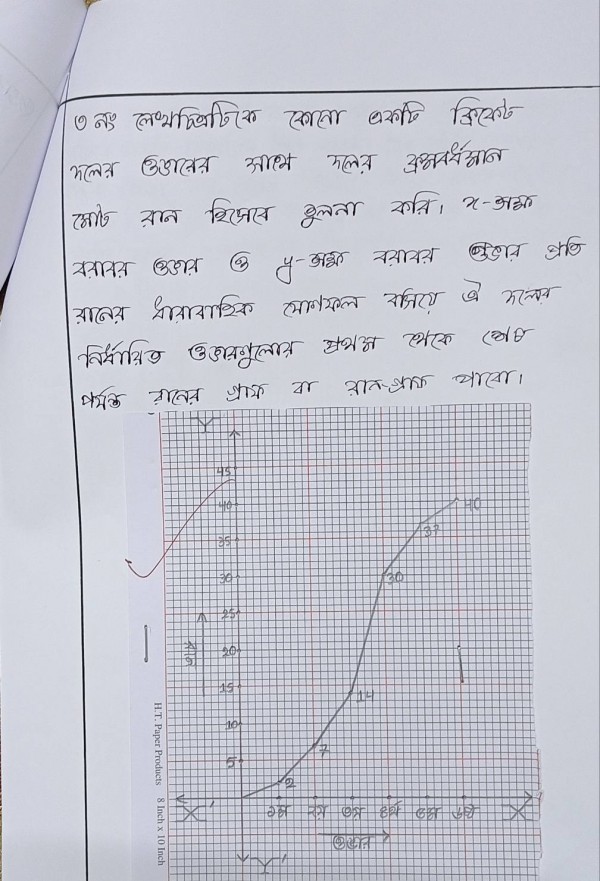 ৩ নং লেখচিত্রটিকে কোনো একটি ক্রিকেট
দলের ওভারের সাথে দলের ক্রমবর্ধমান
মোট রান হিসেবে তুলনা করি। x-অক্ষ
বরাবর ওভার ও y-অক্ষ বরাবর ওভার প্রতি
রানের ধারাবাহিক যোগফল বসিয়ে ঐ দলের
নির্ধারিত ওভারগুলোর প্রথম থেকে শেষ
পর্যন্ত রানের গ্রাফ বা রান-গ্রাফ পাবো।
Y
45
40
40
35
37
30
30
25
রান
20
15
14
10
7
5
2
X'
১ম ২য় ৩য় ৪র্থ ৫ম ৬ষ্ঠ
X
ওভার
Y'
H.T. Paper Products 8 Inch x 10 Inch